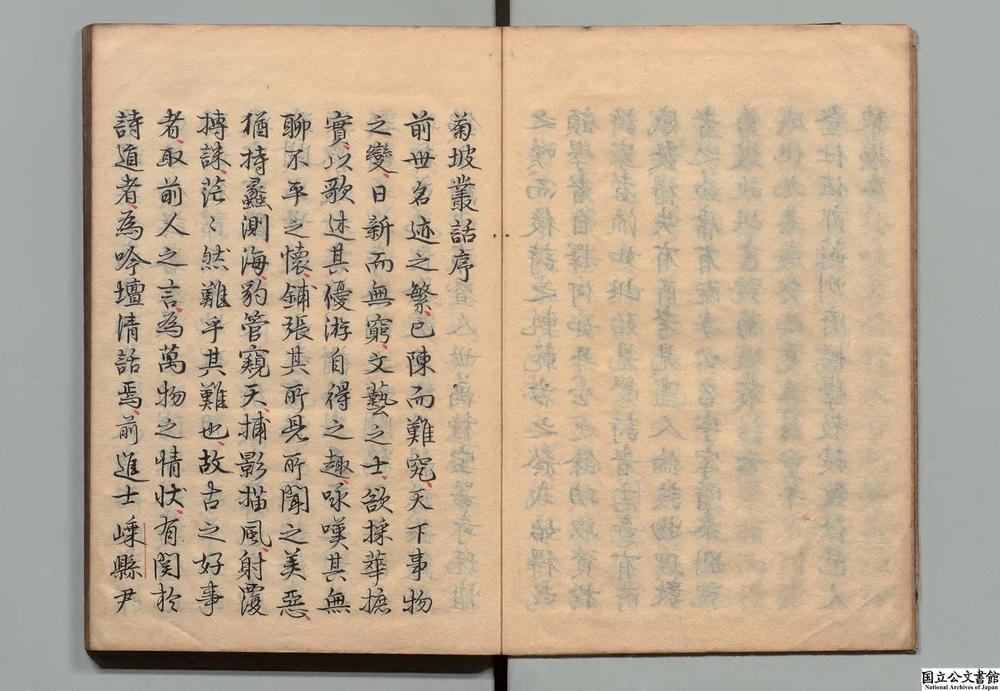 菊坡叢話序
前世名迹之繁已陳而難窮天下事物
之變日新而無窮文藝之士欲採華摭
實以歌述其優游自得之趣咏嘆其無
聊不平之懷鋪張其所見所聞之美惡
猶持蠡測海豹管窺天捕影描風射覆
摶誅茫〻然難乎其難也故古之好事
者取前人之言為萬物之情狀有関於
詩道者為吟壇清話焉前進士嵊縣尹
国立公文書館
National Archives of Japan